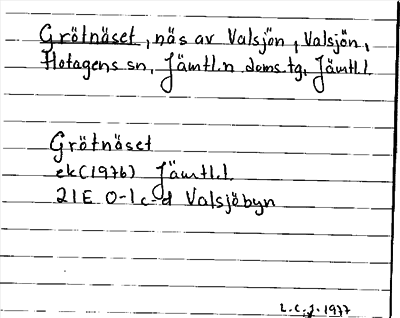 Grötnäset, näs av Valsjön, Valsjön,
Hotagens sn, Jämtl.n doms.tg, Jämtl.l
Grötnäset
ek(1976) Jämtl.l.
21E 0-1c-d Valsjöbyn
L.C.J. 1977